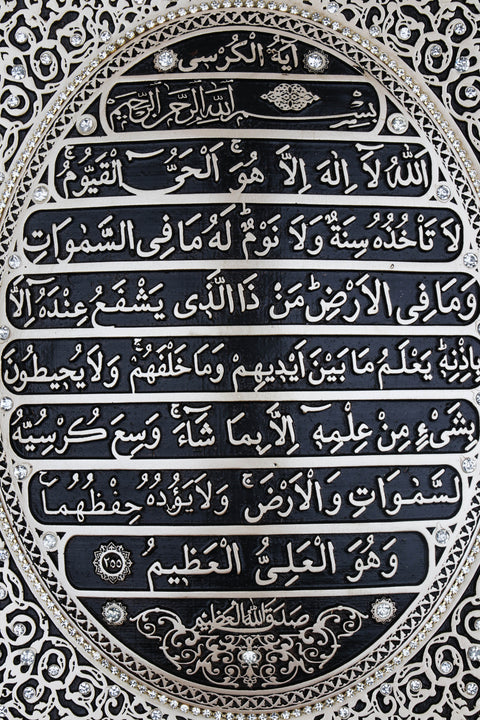 آيَةُ الْكُرْسِى
بِسْمِ اللّٰهِ الرَّحْمٰنِ الرَّحِيمِ
اَللّٰهُ لَآ اِلٰهَ اِلَّا هُوَۚ اَلْحَىُّ الْقَيُّومُ
لَا تَاْخُذُهُ سِنَةٌ وَلَا نَوْمٌۜ لَهُ مَا فِى السَّمٰوَاتِ
وَمَا فِى الْاَرْضِۜ مَنْ ذَا الَّذ۪ى يَشْفَعُ عِنْدَهُٓ اِلَّا
بِاِذْنِه۪ۜ يَعْلَمُ مَا بَيْنَ اَيْد۪يهِمْ وَمَا خَلْفَهُمْۚ وَلَا يُح۪يطُونَ
بِشَىْءٍ مِنْ عِلْمِه۪ٓ اِلَّا بِمَا شَٓاءَۚ وَسِعَ كُرْسِيُّهُ
السَّمٰوَاتِ وَالْاَرْضَۚ وَلَا يَؤُ۫دُهُ حِفْظُهُمَاۚ
وَهُوَ الْعَلِىُّ الْعَظ۪يمُ ٢٥٥
صَدَقَ اللّٰهُ الْعَظِيمُ